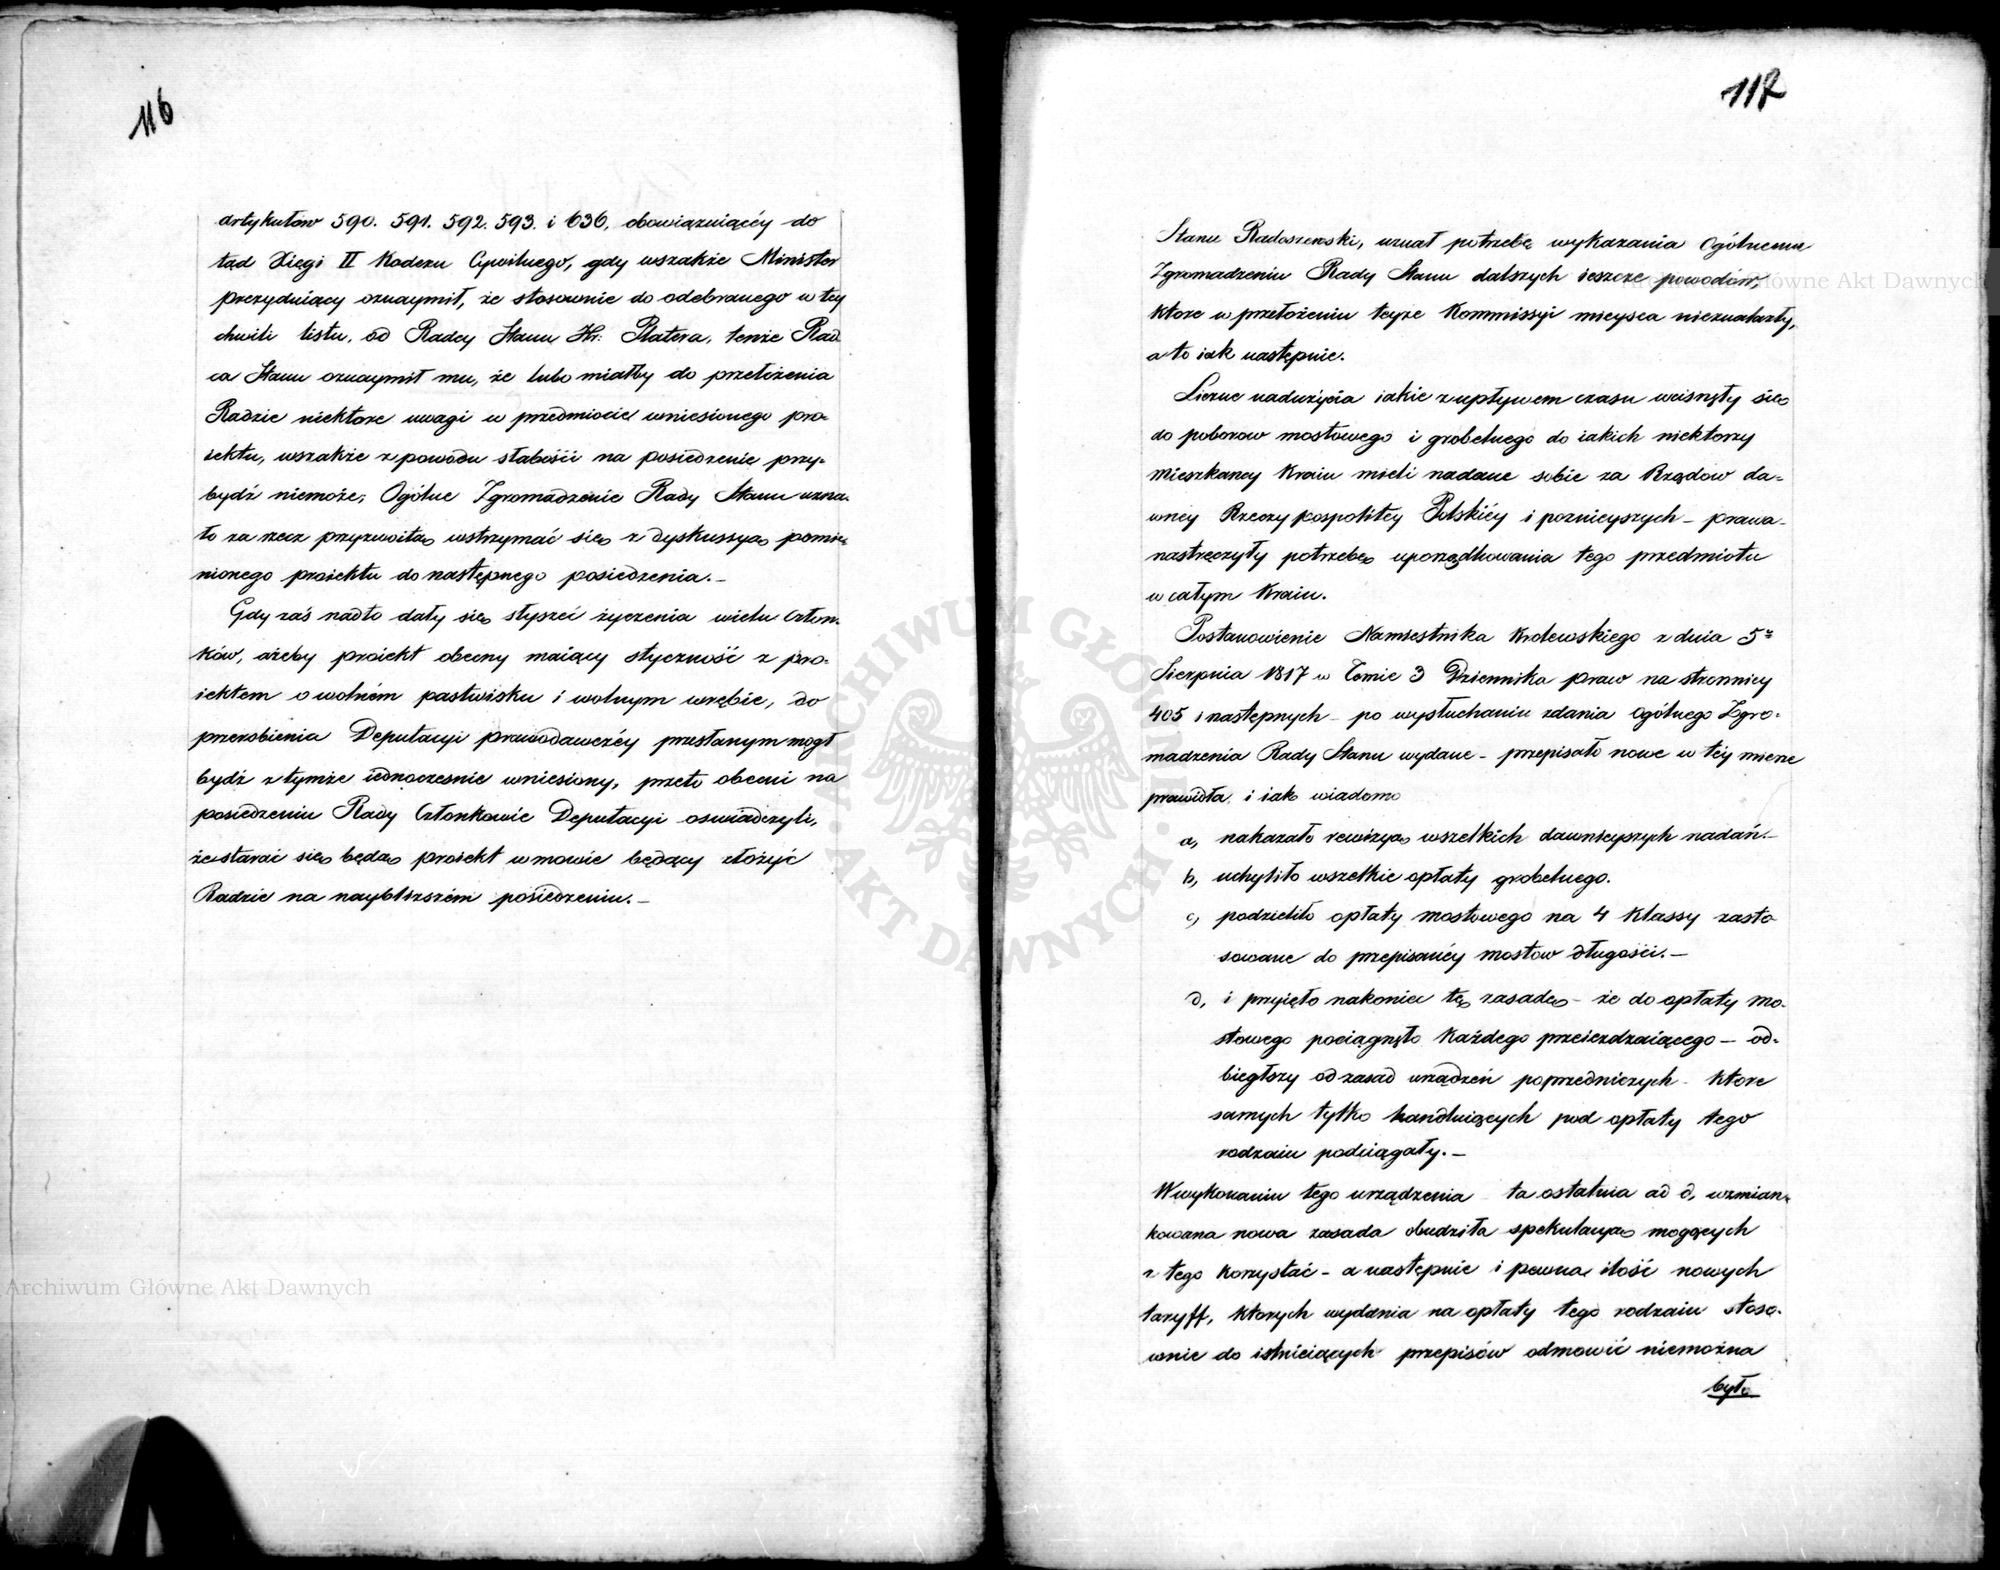 116
artykułów 590. 591. 592. 593. i 636, obowiązuiącéy do
tąd Xięgi II Kodexu Cywilnego, gdy wszakże Minister
prezyduiący oznaymił, że stosownie do odebranego w tey
chwili listu, od Radcy Stanu Hr: Platera, tenże Rad
ca Stanu oznaymił mu, że lubo miałby do przełożenia
Radzie niektore uwagi w przedmiocie wniesionego pro-
iektu, wszakże z powodu słabości na posiedzenie przy-
bydź niemoże, Ogólne Zgromadzenie Rady Stanu uzna-
ło za rzecz przyzwoitą wstrzymać się z dyskussyą pomie-
nionego proiektu do następnego posiedzenia. –
Gdy zaś nadto dały się słyszeć życzenia wielu Człon-
ków, ażeby proiekt obecny maiący styczność z pro-
iektem o wolném pastwisku i wolnym wrębie, do
przerobienia Deputacyi prawodawczéy przesłanym mógł
bydź z tymże iednocześnie wniesiony, przeto obecni na
posiedzeniu Rady Członkowie Deputacyi oswiadczyli,
że starać się będą proiekt w mowie będący złożyć
Radzie na naybliższém posiedzeniu. –
117
Stanu Radoszewski, uznał potrzebę wykazania Ogólnemu
Zgromadzeniu Rady Stanu dalszych ieszcze powodów,
ktore w przełożeniu teyże Kommissyi mieysca nieznalazły,
a to iak następnie.
Liczne nadużycia iakie z upływem czasu wcisnęły się
do poborow mostowego i grobelnego do iakich niektorzy
Mieszkancy Kraiu mieli nadane sobie za Rządow da-
wney Rzeczypospolitey Polskiéy i poznieyszych – prawa –
nastręczyły potrzebę uporządkowania tego przedmiotu
w całym Kraiu.
Postanowienie Namiestnika Krolewskiego z dnia 5º
Sierpnia 1817 w Tomie 3 Dziennika praw na stronnicy
405 i nastepnych – po wysłuchaniu zdania Ogólnego Zgro-
madzenia Rady Stanu wydane – przepisało nowe w téy mierze
prawidła, i iako wiadomo
a, nakazało rewizyą wszelkich dawnieyszych nadań. –
b, uchyliło wszelkie opłaty grobelnego.
c, podzieliło opłaty mostowego na 4 Klassy zasto
sowane do przepisanéy mostow długości. –
d, i przyięło nakoniec tę zasadę – że do opłaty mo-
stowego pociągnęło Każdego przeieżdzaiącego – od-
biegłszy od zasad urządzeń poprzedniczych – Ktore
samych tylko handluiących pod opłaty tego
rodzaiu podciągały. –
W wykonaniu tego urządzenia ta ostatnia ad d, wzmian-
kowana nowa zasada obudziła spekulacyą mogących
z tego Korzystać – a następnie i pewna ilość nowych
taryff, Ktorych wydania na opłaty tego rodzaiu stoso-
wnie do istnieiących przepisów odmowić niemożna
było
Archiwum Główne Akt Dawnych
Archiwum Główne Akt Dawnych
ARCHIWUM GŁÓWNE · AKT DAWNYCH ·